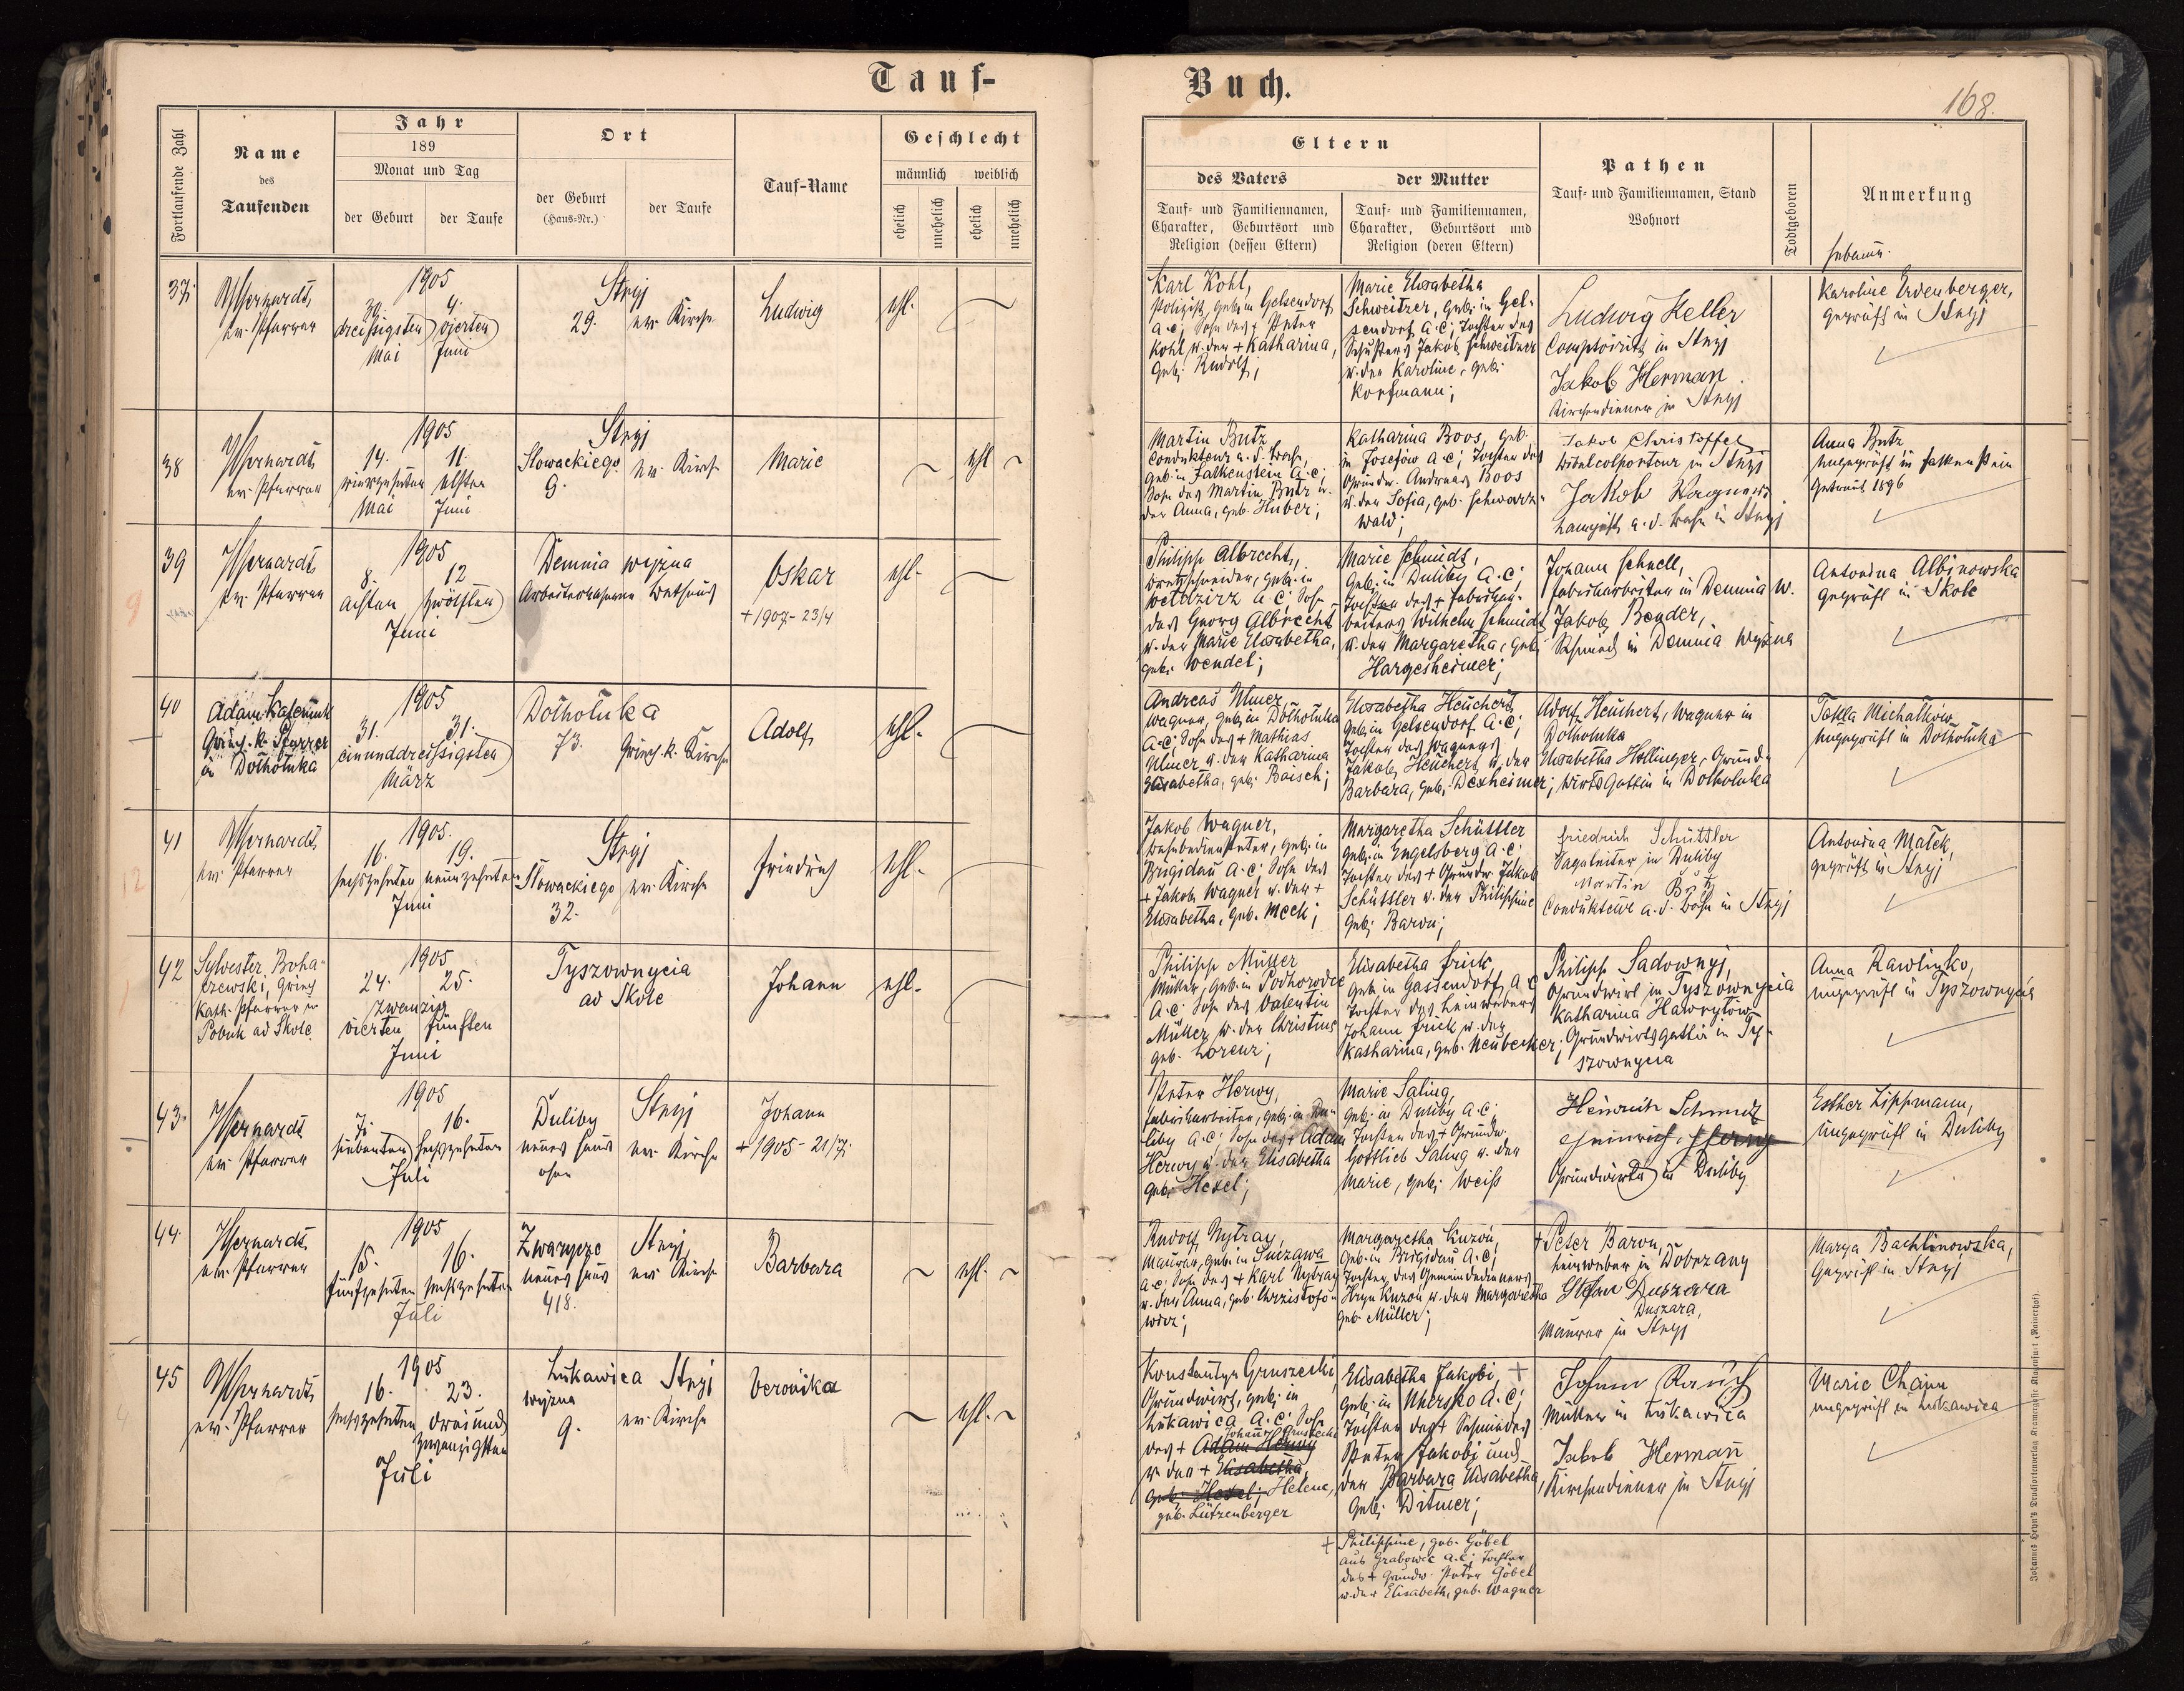 Tauf-
Buch.
168.
Fortlaufende Zahl
Name
des
Taufenden
Jahr
189
Monat und Tag
der Geburt
der Taufe
Ort
der Geburt
(Haus-Nr.)
der Taufe
Tauf-Name
Geschlecht
männlich
weiblich
ehelich
unehelich
ehelich
unehelich
Eltern
des Vaters
der Mutter
Tauf- und Familiennamen,
Charakter, Geburtsort und
Religion (dessen Eltern)
Tauf- und Familiennamen,
Charakter, Geburtsort und
Religion (deren Eltern)
Pathen
Tauf- und Familiennamen, Stand
Wohnort
Todtgeboren
Anmerkung
Hebamme.
37.
ev. Pfarrer
1905
30. 4.
dreissigsten vierten
Mai Juni
Stryj
29. ev. Kirche
Ludwig
ehl.
Karl Kohl,
Polizist, geb. in Gelsendorf
a.c; Sohn des + Peter
Kohl u. der + Katharina,
geb. Rudolf;
Marie Elisabetha
Schweitzer, geb. in Gel-
sendorf a.c; Tochter des
Schusters Jakob Schweitzer
u. der Karoline, geb.
Korfmann;
Ludwig Keller
Comptorist in Stryj
Jakob Herman
Kirchendiener in Stryj
Karoline Erdenberger,
geprüft in Stryj
38
ev. Pfarrer
1905
14. 11.
vierzehnten elften
Mai Juni
Stryj
Slowackiego ev. Kirche
9.
Marie
ehl
Martin Butz
Condukteur a. d. Bahn,
geb. in Falkenstein a.c;
Sohn des Martin Butz u.
der Anna, geb. Huber;
Katharina Boos, geb.
in Josefów a.c; Tochter des
Grundw. Andreas Boos
u. der Sofia, geb. Schwarz-
wald;
Jakob Christoffel
Bibelcolporteur in Stryj
Jakob Wagner
a. d. Bahn in Stryj
Anna Butz
ungeprüft in Falkenstein
Getraut 1896
39
ev. Pfarrer
1905
8. 12
achten zwölften
Juni
Demnia wyżna
Arbeiterkaserne Bethaus
Oskar
+ 1907 - 23/4
ehl.
Philipp Albrecht,
Brettschneider, geb. in
a.c; Sohn
des Georg Albrecht
u. der Marie Elisabetha,
geb. Wendel;
Marie Schmidt,
geb. in Duliby a.c;
Tochter des + Fabrikar-
beiters Wilhelm Schmidt
u. der Margaretha, geb.
Hargesheimer;
Johann Schnell,
Fabrikarbeiter in Demnia w.
Jakob Bender,
Schmied in Demnia wyżna
Antonina Albinowska
geprüft in Skole
40
Adam
Griech. k. Pfarrer
in Dołhołuka
1905
31. 31.
einunddreissigsten
März
Dołhołuka
73. Griech. k. Kirche
Adolf
ehl.
Andreas Ulmer
Wagner, geb. in Dołhołuka
a.c; Sohn des + Mathias
Ulmer u. der Katharina
Elisabetha, geb. Baisch;
Elisabetha Heuchert
geb. in Gelsendorf a.c;
Tochter des Wagners
Jakob Heuchert u. der
Barbara, geb. Dexheimer;
Adolf Heuchert, Wagner in
Dołhołuka
Elisabetha Hollinger, Grund-
wirts Gattin in Dołhołuka
Tekla Michalków
ungeprüft in Dołhołuka
41
ev. Pfarrer
1905.
16. 19.
sechszehnten neunzehnten
Juni
Stryj
Słowackiego ev. Kirche
32.
Friedrich
ehl.
Jakob Wagner,
Bahnbediensteter, geb. in
Brigidau a.c; Sohn des
+ Jakob Wagner u. der +
Elisabetha, geb. Meck;
Margaretha Schüttler
geb. in Engelsberg a.c;
Tochter des + Grundw. Jakob
Schüttler u. der Philippine
geb. Baron;
Friedrich Schüttler
in Duliby
Martin Butz
Condukteur a. d. Bahn in Stryj
Antonina Małek,
geprüft in Stryj
42
Sylvester Boha-
czewski, Griech.
Kath. Pfarrer in
Pobuk ad Skole
1905
24. 25.
zwanzig
vierten fünften
Juni
Tyszownycia
ad Skole
Johann
ehl.
Philipp Müller
Müller, geb. in Podhorodce
a.c; Sohn des Valentin
Müller u. der Christine
geb. Lorenz;
Elisabetha Frick
geb. in Gassendorf, a.c
Tochter des Leinwebers
Johann Frick u. der
Katharina, geb. Neubecker;
Philipp Sadownyj,
Grundwirt in Tyszownycia
Katharina Hawryłów
Grundwirtsgattin in Ty-
szownycia
Anna Rawlinko,
ungeprüft in Tyszownycia
43.
ev. Pfarrer
1905
7. 16.
siebenten sechszehnten
Juli
Duliby
neues Haus
ohne
Stryj
ev. Kirche
Johann
+ 1905 - 21/7.
Peter Herwy,
Fabrikarbeiter, geb. in Du-
liby a.c; Sohn des + Adam
Herwy u. der Elisabetha
geb. Hexel;
Marie Saling,
geb. in Duliby a.c;
Tochter des + Grundw.
Gottlieb Saling u. der
Marie, geb. Weiss
Heinrich Schmidt
Heinrich Herwy
Grundwirte in Duliby
Esther Lippmann,
ungeprüft in Duliby
44.
ev. Pfarrer
1905
15. 16.
fünfzehnten sechszehnten
Juli
neues Haus
418.
Stryj,
ev. Kirche
Barbara
ehl.
Rudolf Nytray,
Maurer, geb. in Suczawa
a.c; Sohn des + Karl Nytray
u. der Anna, geb. Krzisztofo-
wicz;
Margaretha Kuzon,
geb. in Brigidau a.c;
Tochter des Gemeindedieners
Hryn Kuzon u. der Margaretha
geb. Müller;
+ Peter Baron,
Leinweber in Dobrzany
Stefan Duszara
Duszara,
Maurer in Stryj
Marya Bachlinowska,
geprüft in Stryj
45
ev. Pfarrer
1905
16. 23.
sechszehnten dreiund
zwanzigsten
Juli
Łukawica
wyżna
9.
Stryj
ev. Kirche
Veronika
ehl.
Konstantyn Gruszecki,
Grundwirt, geb. in
Łukawica a.c; Sohn
Johann Gruszecki
des + Adam Herwy
u. der + Elisabetha,
geb. Hexel; Helene,
geb. Lützenberger
Elisabetha Jakobi, +
geb. in Uhersko a.c;
Tochter des + Schmiedes
Peter Jakobi und
der Barbara Elisabetha,
geb. Ditmer;
+ Philippine, geb. Göbel
aus Grabowce a.c; Tochter
des + Grundw. Peter Göbel
u. der Elisabeth, geb. Wagner
Johann Rauch
Müller in Łukawica
Jakob Herman
Kirchendiener in Stryj
Marie Chain
ungeprüft in Łukawica
Johannes Heyn's Drucksortenverlag Kramergasse Klagenfurt (Rainerhof).